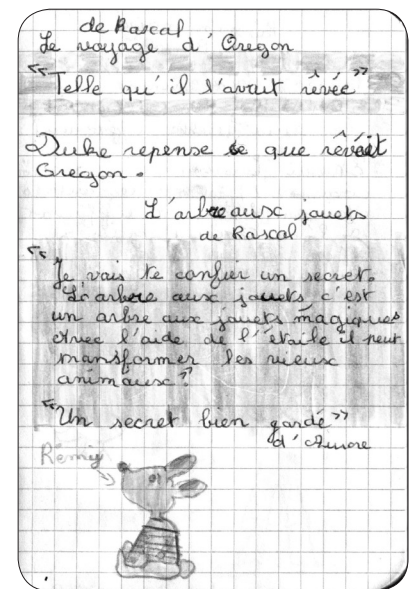 de Rascal
Le voyage d'Oregon
"Telle qu'il l'avait rêvée"
Duke repense ce que rêvait
Oregon.
L'arbre aux jouets
de Rascal
"Je vais te confier un secret.
L'arbre aux jouets c'est
un arbre aux jouets magiques
Avec l'aide de l'étaile il peut
transformer les vieux
animaux"
"Un secret bien gardé"
d'Aurore
Rémig